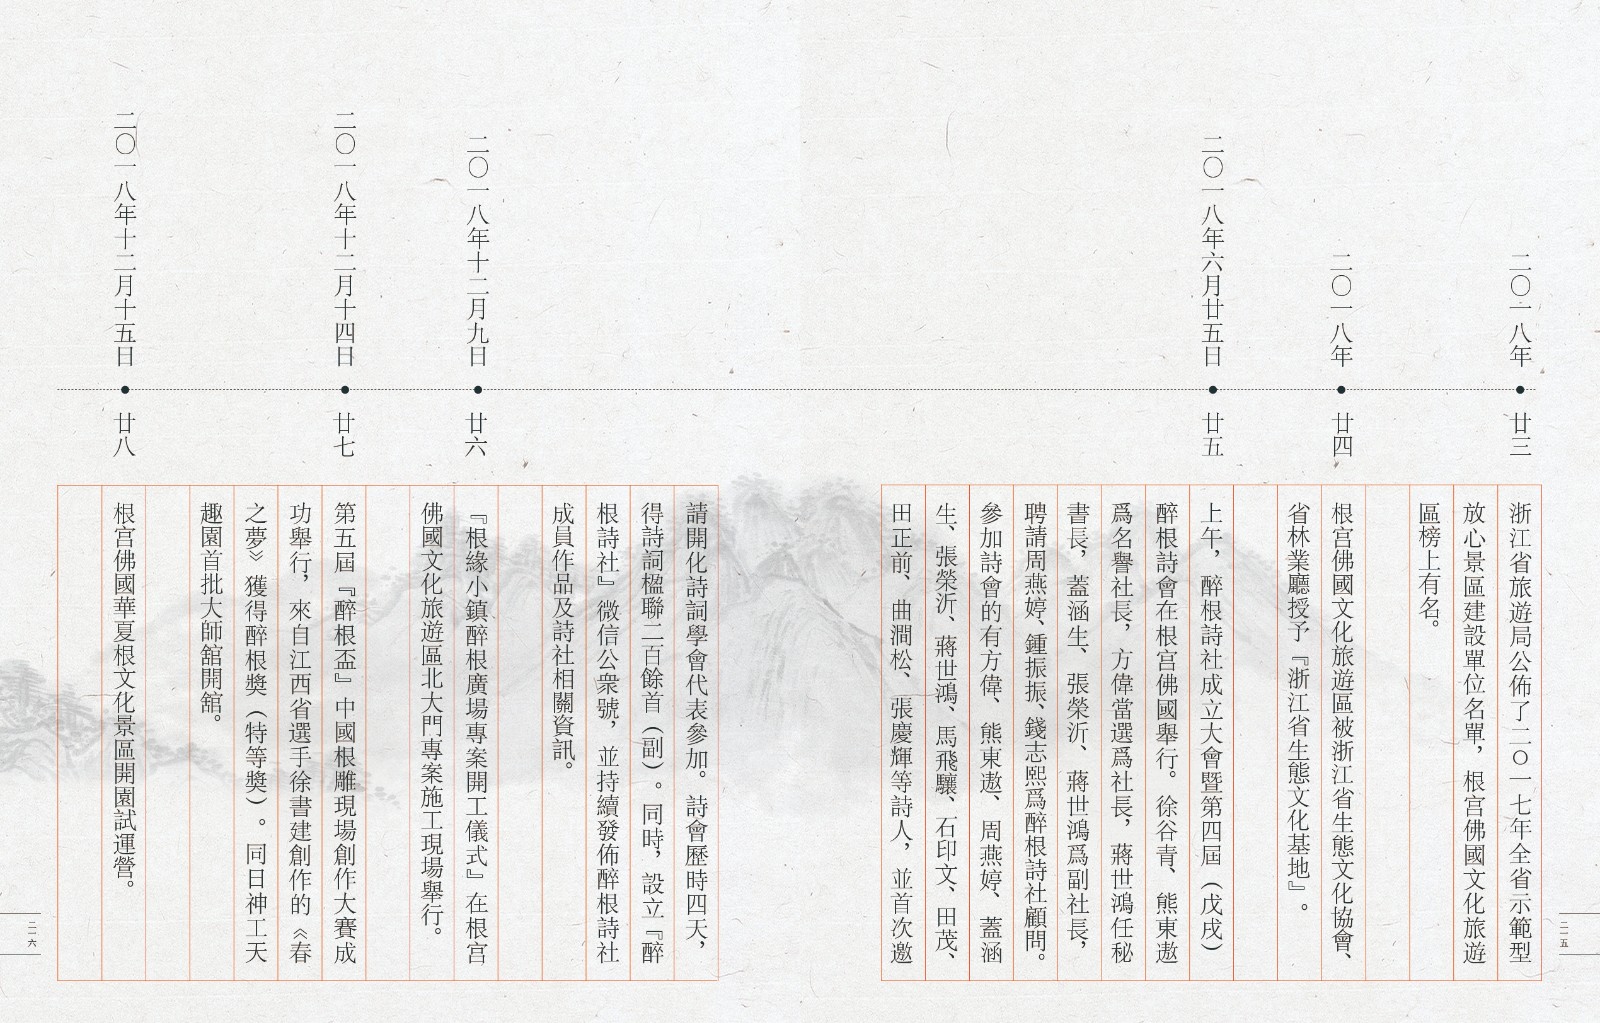 二〇一八年
廿三
浙江省旅遊局公佈了二〇一七年全省示範型
放心景區建設單位名單，根宮佛國文化旅遊
區榜上有名。
二〇一八年
廿四
根宮佛國文化旅遊區被浙江省生態文化協會、
省林業廳授予『浙江省生態文化基地』。
二〇一八年六月廿五日
廿五
上午，醉根詩社成立大會暨第四屆（戊戌）
醉根詩會在根宮佛國舉行。徐谷青、熊東遨
爲名譽社長，方偉當選爲社長，蔣世鴻任秘
書長，蓋涵生、張榮沂、蔣世鴻爲副社長，
聘請周燕婷、鍾振振、錢志熙爲醉根詩社顧問。
參加詩會的有方偉、熊東遨、周燕婷、蓋涵
生、張榮沂、蔣世鴻、馬飛驤、石印文、田茂、
田正前、曲澗松、張慶輝等詩人，並首次邀
二一五
請開化詩詞學會代表參加。詩會歷時四天，
得詩詞楹聯二百餘首（副）。同時，設立『醉
根詩社』微信公衆號，並持續發佈醉根詩社
成員作品及詩社相關資訊。
二〇一八年十二月九日
廿六
『根緣小鎮醉根廣場專案開工儀式』在根宮
佛國文化旅遊區北大門專案施工現場舉行。
二〇一八年十二月十四日
廿七
第五屆『醉根盃』中國根雕現場創作大賽成
功舉行，來自江西省選手徐書建創作的《春
之夢》獲得醉根獎（特等獎）。同日神工天
趣園首批大師舘開舘。
二〇一八年十二月十五日
廿八
根宮佛國華夏根文化景區開園試運營。
二一六